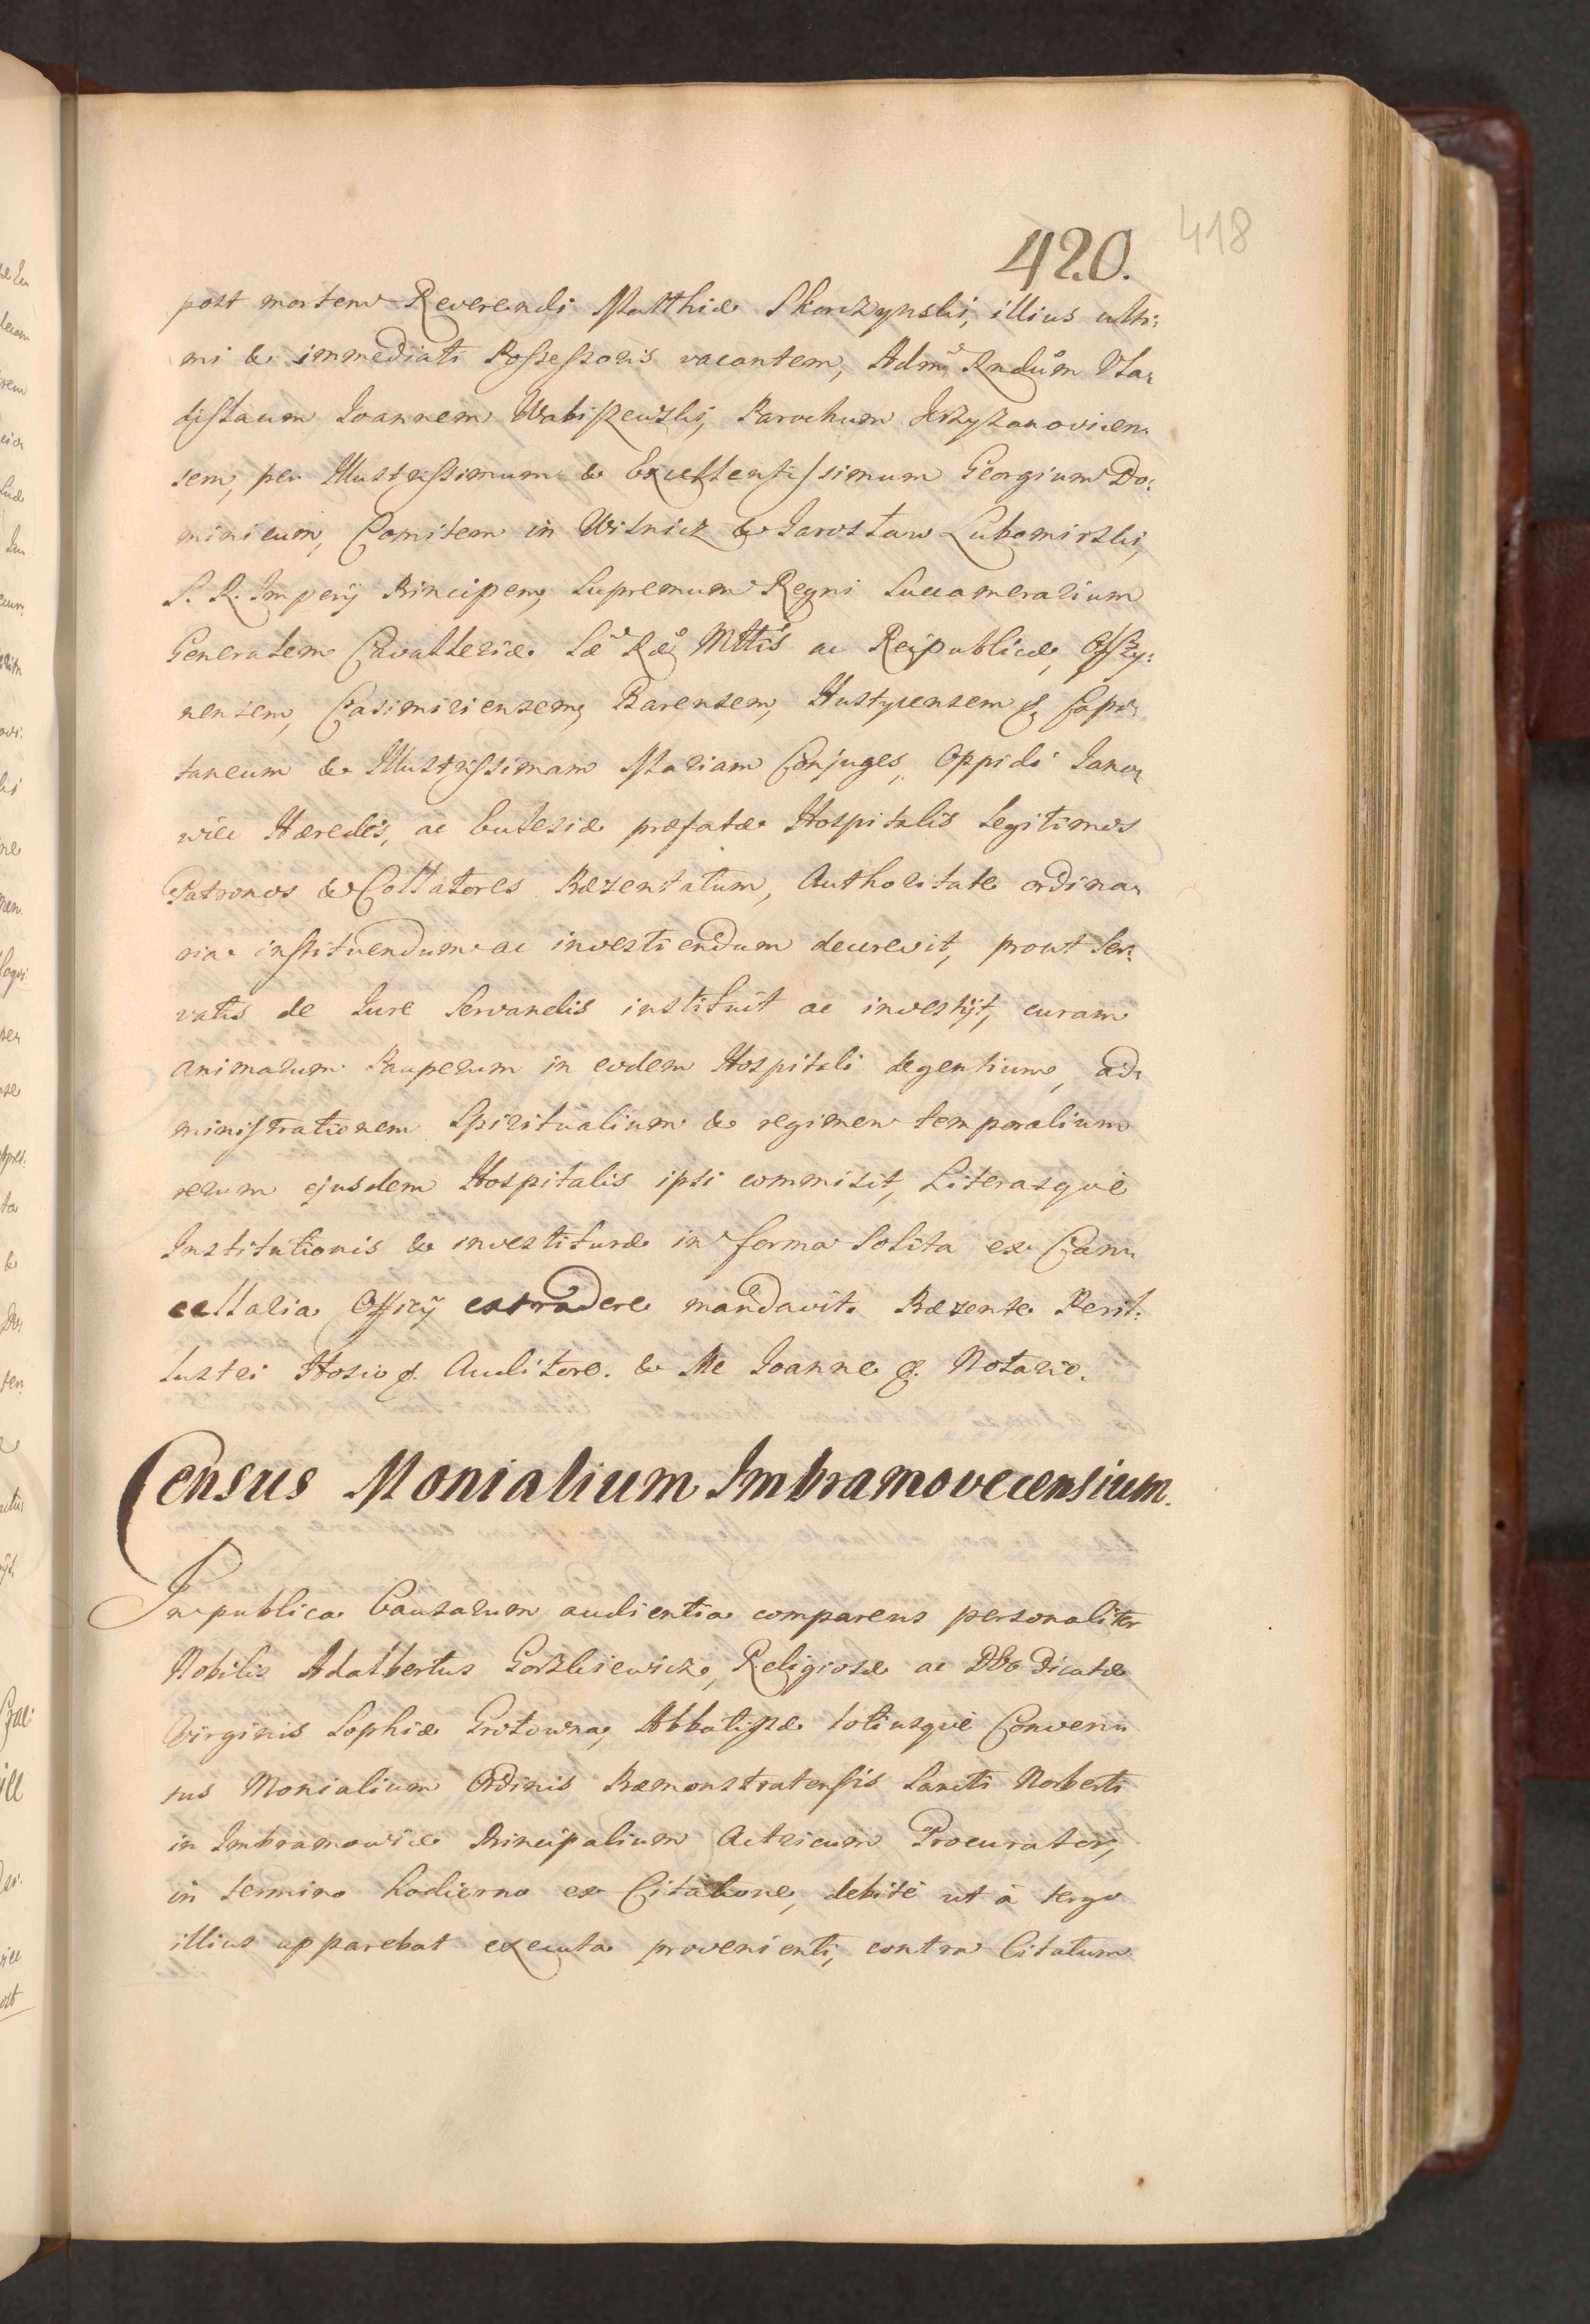 418
420.
post mortem Reverendi Matthiæ Skorczynski, illius ulti:
mi & immediati Possessoris vacantem, Admˢ Rndum Vla:
dislaum Joannem Wabiszewski, Parochum Krzyzanovicen:
sem, per Illustrissimum & Excellentissimum Georgium Do:
minicum, Comitem in Wisnicz & Jaroslaw Lubomirski,
S. R. Imperÿ Principem, Supremum Regni Succamerarium
Generalem Cavalleriæ Sæ Ræ Mttis ac Reipublicæ, Olszty:
nensem, Casimiriensem, Barensem, Hustycensem &. Capi:
taneum & Illustrissimam Mariam Conjuges, Oppidi Jano:
wiec Hæredes, ac Ecclesiæ præfatæ Hospitalis legitimos
Patronos & Collatores Præzentatum, Authoritate ordina:
ria instituendum ac investiendum decrevit, prout ser:
vatis de Jure Servandis instituit ac investijt, curam
animarum Pauperum in eodem Hospitali degentium, ad:
ministrationem Spiritualium & regimen temporalium
rerum ejusdem Hospitalis ipsi commisit, Literasque
Institutionis & investituræ in forma Solita ex Can:
cellaria Officÿ extradere mandavit. Præzente Peril:
lustri Hosio &. Auditore. & Me Joanne &. Notario.
Census Monialium Imbramovecensium.
In publica Causarum audientia comparens personaliter
Nobilis Adalbertus Gorzkiewicz, Religiosæ ac Deo dicatæ
Virginis Sophiæ Grotowna, Abbatissæ totiusque Conven:
tus Monialium Ordinis Præmonstratensis Sancti Norberti
in Imbramowice Principalium Actricum Procurator,
in termino hodierno ex Citatione, debite ut à tergo
illius apparebat executa provenienti, contra Citatum